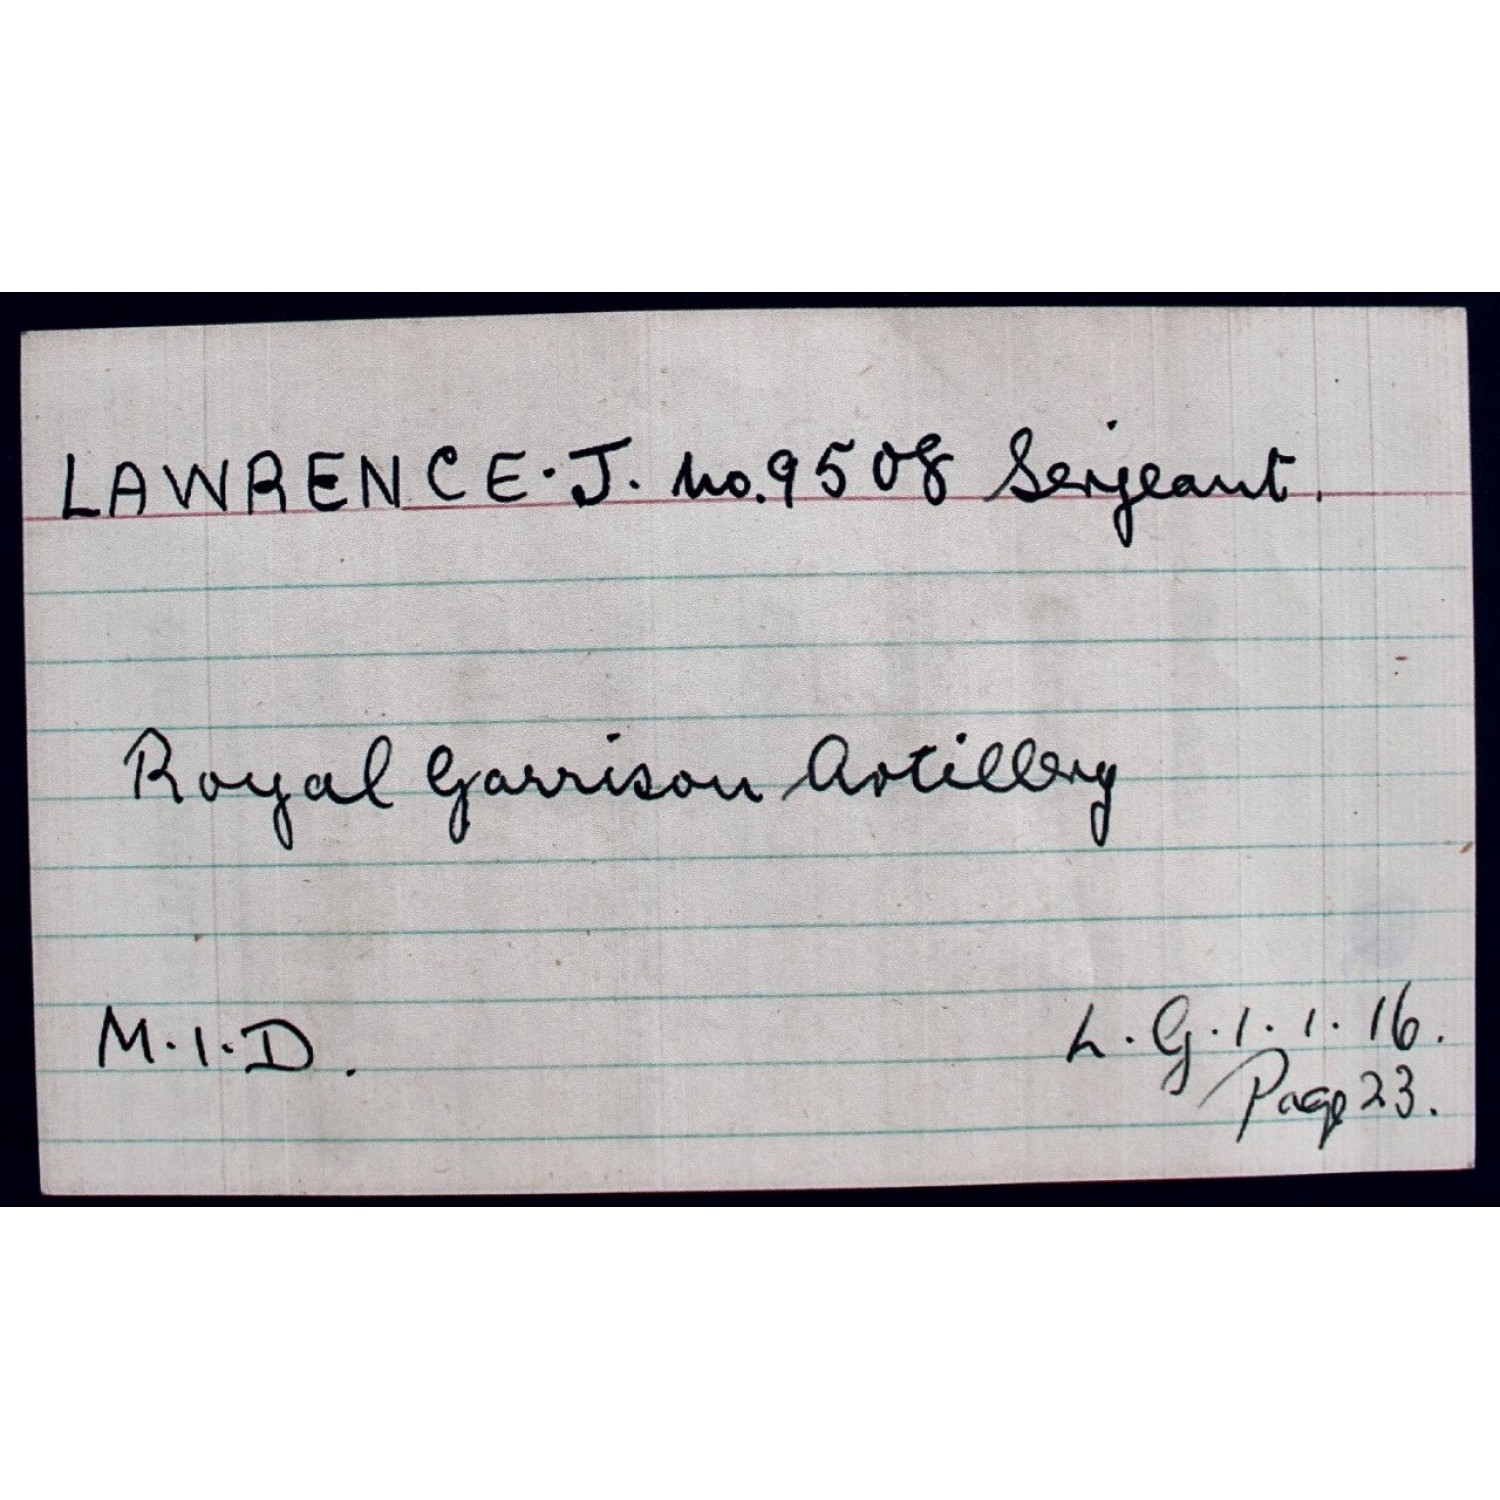 LAWRENCE. J. No. 9508 Serjeant.
Royal Garrison Artillery
M.I.D.
L.G.1.1.16.
Page 23.